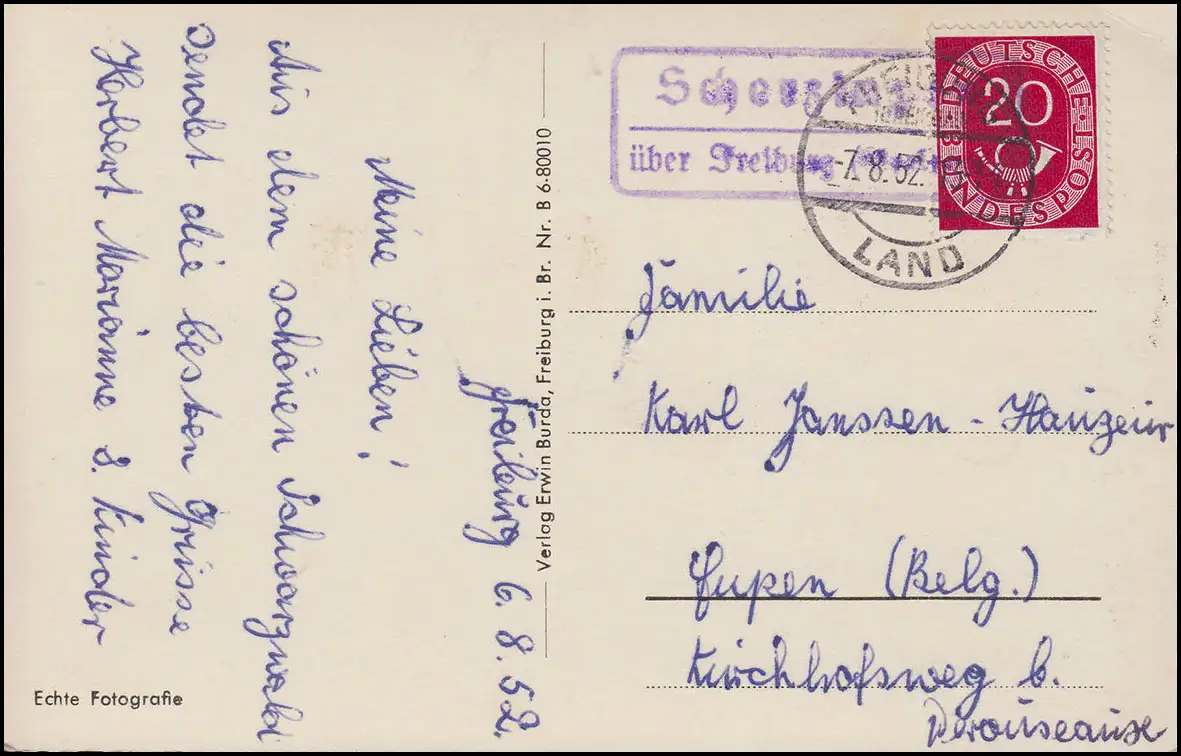 Freiburg 6. 8. 52.
Meine Lieben!
Aus dem schönen Schwarzwald
sendet die besten Grüsse
Herbert Marianne u. Kinder
Echte Fotografie
Verlag Erwin Burda, Freiburg i. Br. Nr. B 6-80010
über Freiburg
-7.8.52.
LAND
DEUTSCHE BUNDESPOST
20
Familie
Karl Janssen - Hauzeur
Eupen (Belg.)
Kirchhofsweg b.